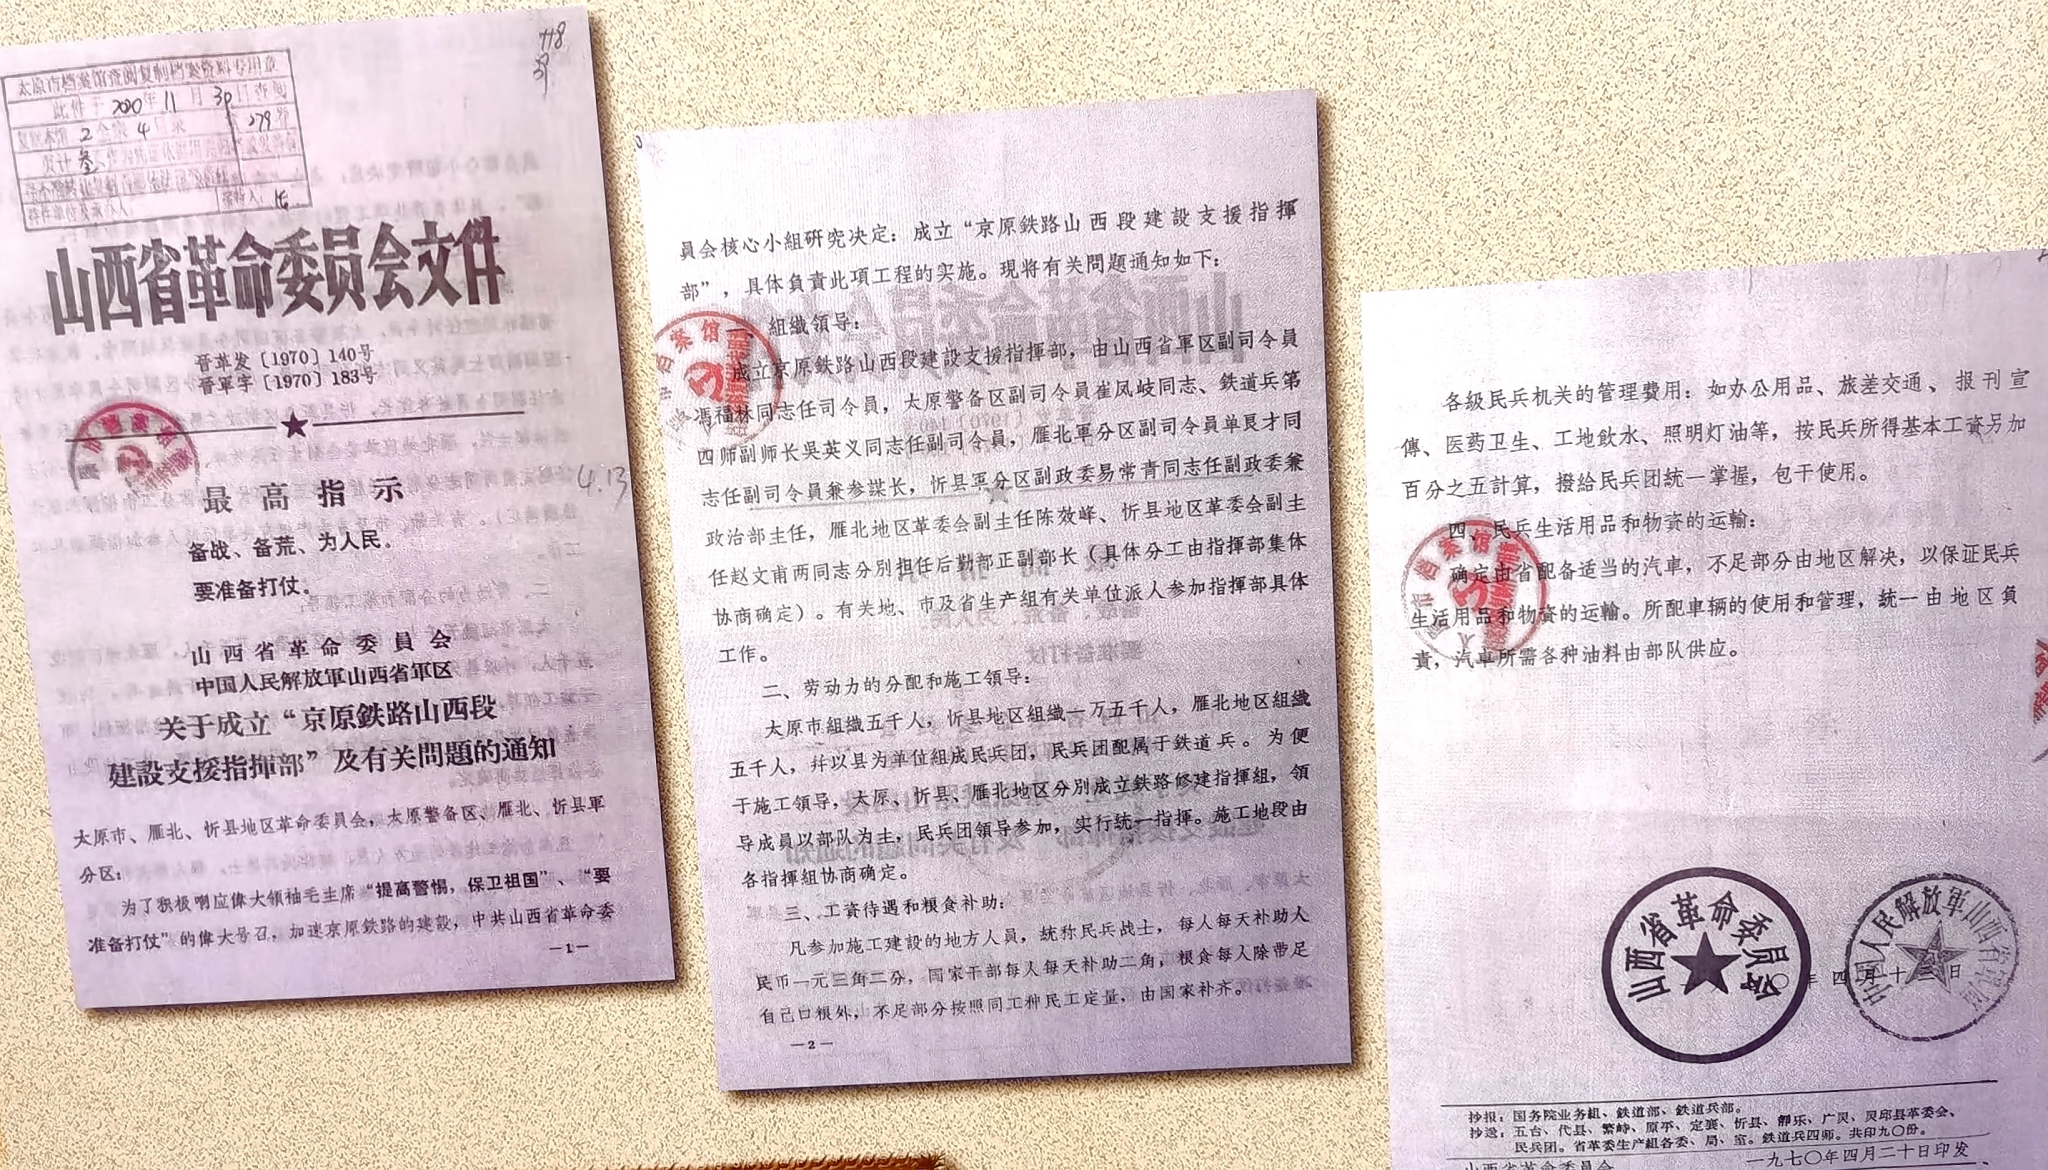 118
太原市档案馆查阅复制档案资料专用章
此件于2020年11月30日查阅
山西省革命委员会文件
晋革发〔1970〕140号
晋軍字〔1970〕183号
4.13
最高指示
备战、备荒、为人民。
要准备打仗。
山西省革命委員会
中国人民解放軍山西省軍区
关于成立“京原鉄路山西段
建設支援指揮部”及有关問題的通知
太原市、雁北、忻县地区革命委員会，太原警备区、雁北、忻县軍
分区：
为了积极响应偉大領袖毛主席“提高警惕，保卫祖国”、“要
准备打仗”的偉大号召，加速京原鉄路的建設，中共山西省革命委
—1—
員会核心小組研究决定：成立“京原鉄路山西段建設支援指揮
部”，具体負責此項工程的实施。現将有关問題通知如下：
一、組織領导：
成立京原鉄路山西段建設支援指揮部，由山西省軍区副司令員
馮福林同志任司令員，太原警备区副司令員崔凤岐同志、鉄道兵第
四师副师长吳英义同志任副司令員，雁北軍分区副司令員单艮才同
志任副司令員兼参謀长，忻县軍分区副政委易常青同志任副政委兼
政治部主任，雁北地区革委会副主任陈效峰、忻县地区革委会副主
任赵文甫两同志分別担任后勤部正副部长（具体分工由指揮部集体
协商确定）。有关地、市及省生产組有关单位派人参加指揮部具体
工作。
二、劳动力的分配和施工領导：
太原市組織五千人，忻县地区組織一万五千人，雁北地区組織
五千人，幷以县为单位組成民兵团，民兵团配属于鉄道兵。为便
于施工領导，太原、忻县、雁北地区分別成立鉄路修建指揮組，領
导成員以部队为主，民兵团領导参加，实行統一指揮。施工地段由
各指揮組协商确定。
三、工資待遇和粮食补助：
凡参加施工建設的地方人員，統称民兵战士，每人每天补助人
民币一元三角二分，国家干部每人每天补助二角，粮食每人除带足
自己口粮外，不足部分按照同工种民工定量，由国家补齐。
—2—
各級民兵机关的管理費用：如办公用品、旅差交通、报刊宣
傳、医药卫生、工地飲水、照明灯油等，按民兵所得基本工資另加
百分之五計算，撥給民兵团統一掌握，包干使用。
四、民兵生活用品和物資的运輸：
确定由省配备适当的汽車，不足部分由地区解决，以保証民兵
生活用品和物資的运輸。所配車辆的使用和管理，統一由地区負
責，汽車所需各种油料由部队供应。
山西省革命委员会
中国人民解放軍山西省軍区
〇年四月十三日
抄报：国务院业务組、鉄道部、鉄道兵部。
抄送：五台、代县、繁峙、原平、定襄、忻县、靜乐、广灵、灵邱县革委会、
民兵团。省革委生产組各委、局、室。鉄道兵四师。共印九〇份。
山西省革命委員会
一九七〇年四月二十日印发